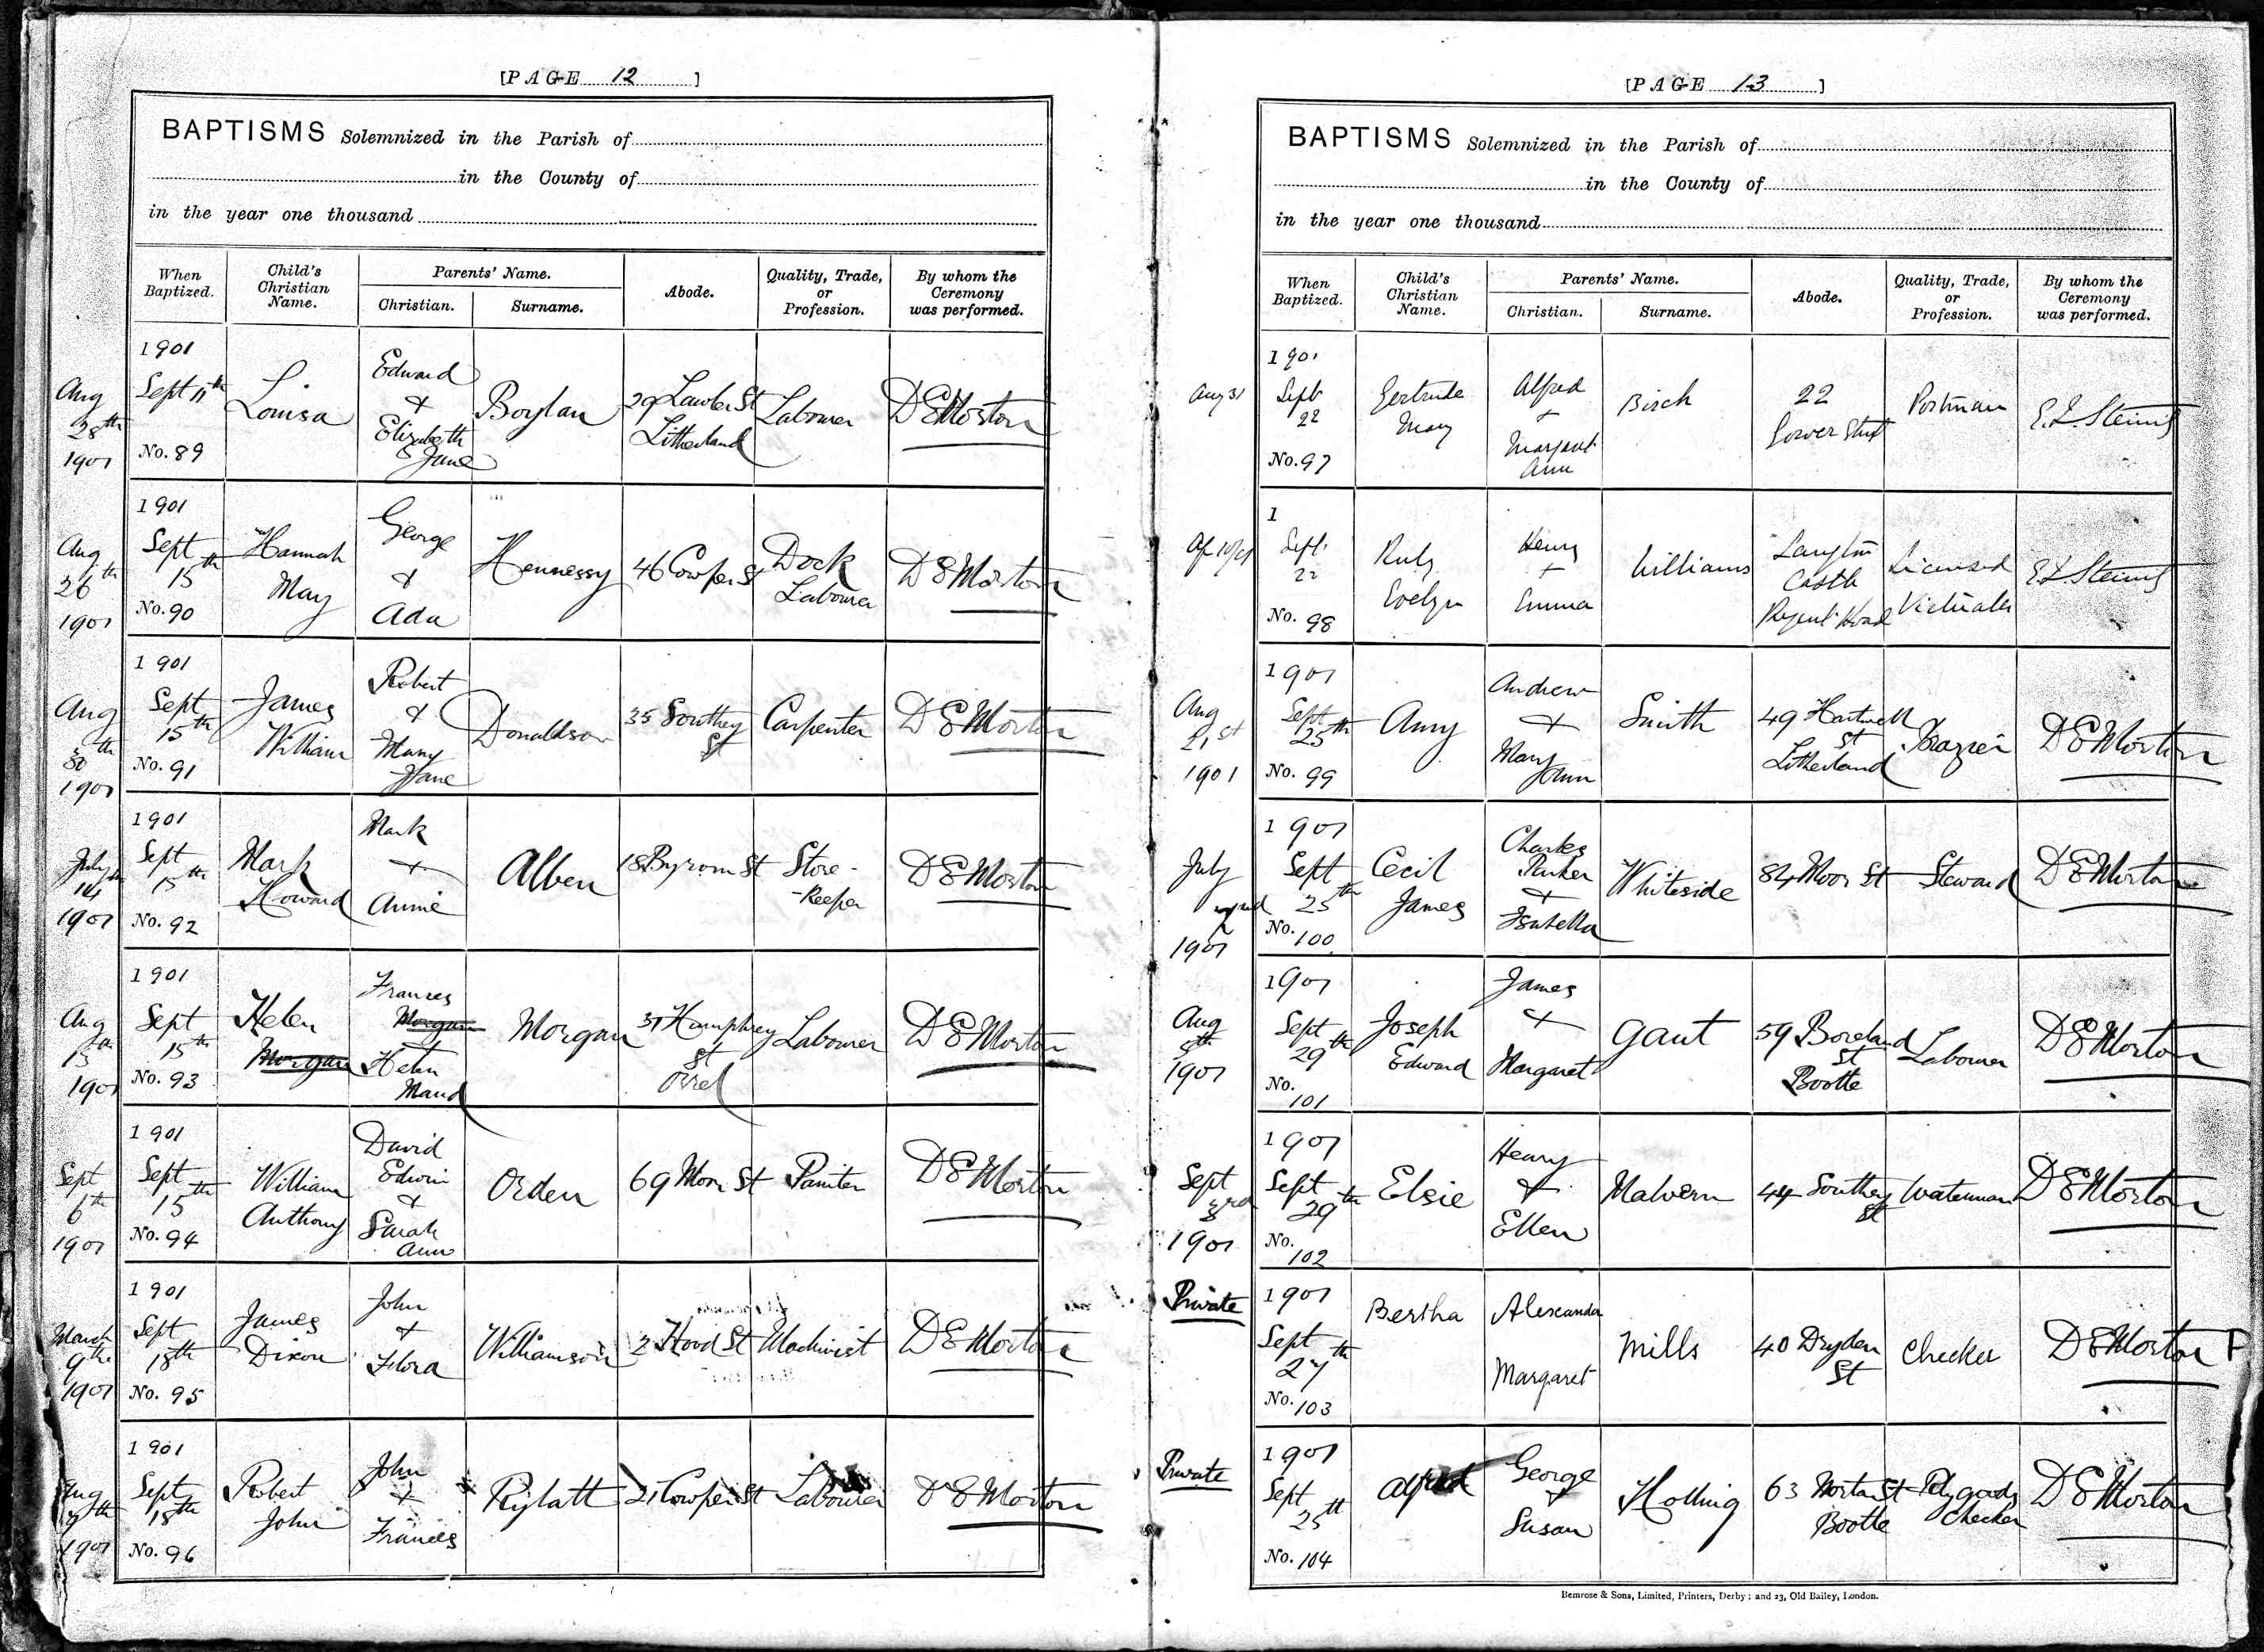 [PAGE 12]
BAPTISMS Solemnized in the Parish of
in the County of
in the year one thousand
When Baptized.
Child's Christian Name.
Parents' Name.
Christian.
Surname.
Abode.
Quality, Trade, or Profession.
By whom the Ceremony was performed.
Aug 28th 1901
1901 Sept 11th
No. 89
Louisa
Edward & Elizabeth Jane
Boylan
29 St Litherland
Labourer
D E Morton
Aug 26th 1901
1901 Sept 15th
No. 90
Hannah May
George & Ada
Hennessy
46 Cowper St
Dock Labourer
D E Morton
Aug 1901
1901 Sept 15th
No. 91
James William
Robert & Mary Jane
Donaldson
35 Southey St
Carpenter
D E Morton
July 14 1901
1901 Sept 15th
No. 92
Mark Howard
Mark + Annie
Alben
18 Byrom St
Store-keeper
D E Morton
Aug 13th 1901
1901 Sept 15th
No. 93
Helen Morgan
Frances Morgan Helen Maud
Morgan
31 Humphrey St Orrel
Labourer
D E Morton
Sept 6th 1901
1901 Sept 15th
No. 94
William Anthony
David Edwin & Sarah Ann
Orden
69 Moor St
Painter
D E Morton
March 9th 1901
1901 Sept 18th
No. 95
James Dixon
John + Flora
Williamson
2 Hood St
Machinist
D E Morton
Aug 7th 1901
1901 Sept 18th
No. 96
Robert John
John + Frances
Rylatt
21 Cowper St
Labourer
D E Morton
[PAGE 13]
BAPTISMS Solemnized in the Parish of
in the County of
in the year one thousand
When Baptized.
Child's Christian Name.
Parents' Name.
Christian.
Surname.
Abode.
Quality, Trade, or Profession.
By whom the Ceremony was performed.
Aug 31
1901 Sept 22
No. 97
Gertrude Mary
Alfred + Margaret Ann
Birch
22 Gower Street
Postman
1 Sept. 22
No. 98
Ruby Evelyn
Henry + Emma
Williams
Langton Castle Regent Road
Licensed Victualler
Aug 21st 1901
1901 Sept 25th
No. 99
Amy
Andrew + Mary Ann
Smith
49 Hartwell St Litherland
Brazier
D E Morton
July 1901
1901 Sept 25th
No. 100
Cecil James
Charles Parker + Isabella
Whiteside
84 Moor St
Steward
D E Morton
Aug 5th 1901
1901 Sept 29th
No. 101
Joseph Edward
James + Margaret
Gant
59 Boreland St Bootle
Labourer
D E Morton
Sept 3rd 1901
1901 Sept 29th
No. 102
Elsie
Henry & Ellen
Malvern
44 Southey St
Waterman
D E Morton
Private
1901 Sept 27th
No. 103
Bertha
Alexander Margaret
Mills
40 Dryden St
Checker
D E Morton P
Private
1901 Sept 25th
No. 104
Alfred
George + Susan
63 Morton St Bootle
goods Checker
D E Morton
Bemrose & Sons, Limited, Printers, Derby; and 23, Old Bailey, London.